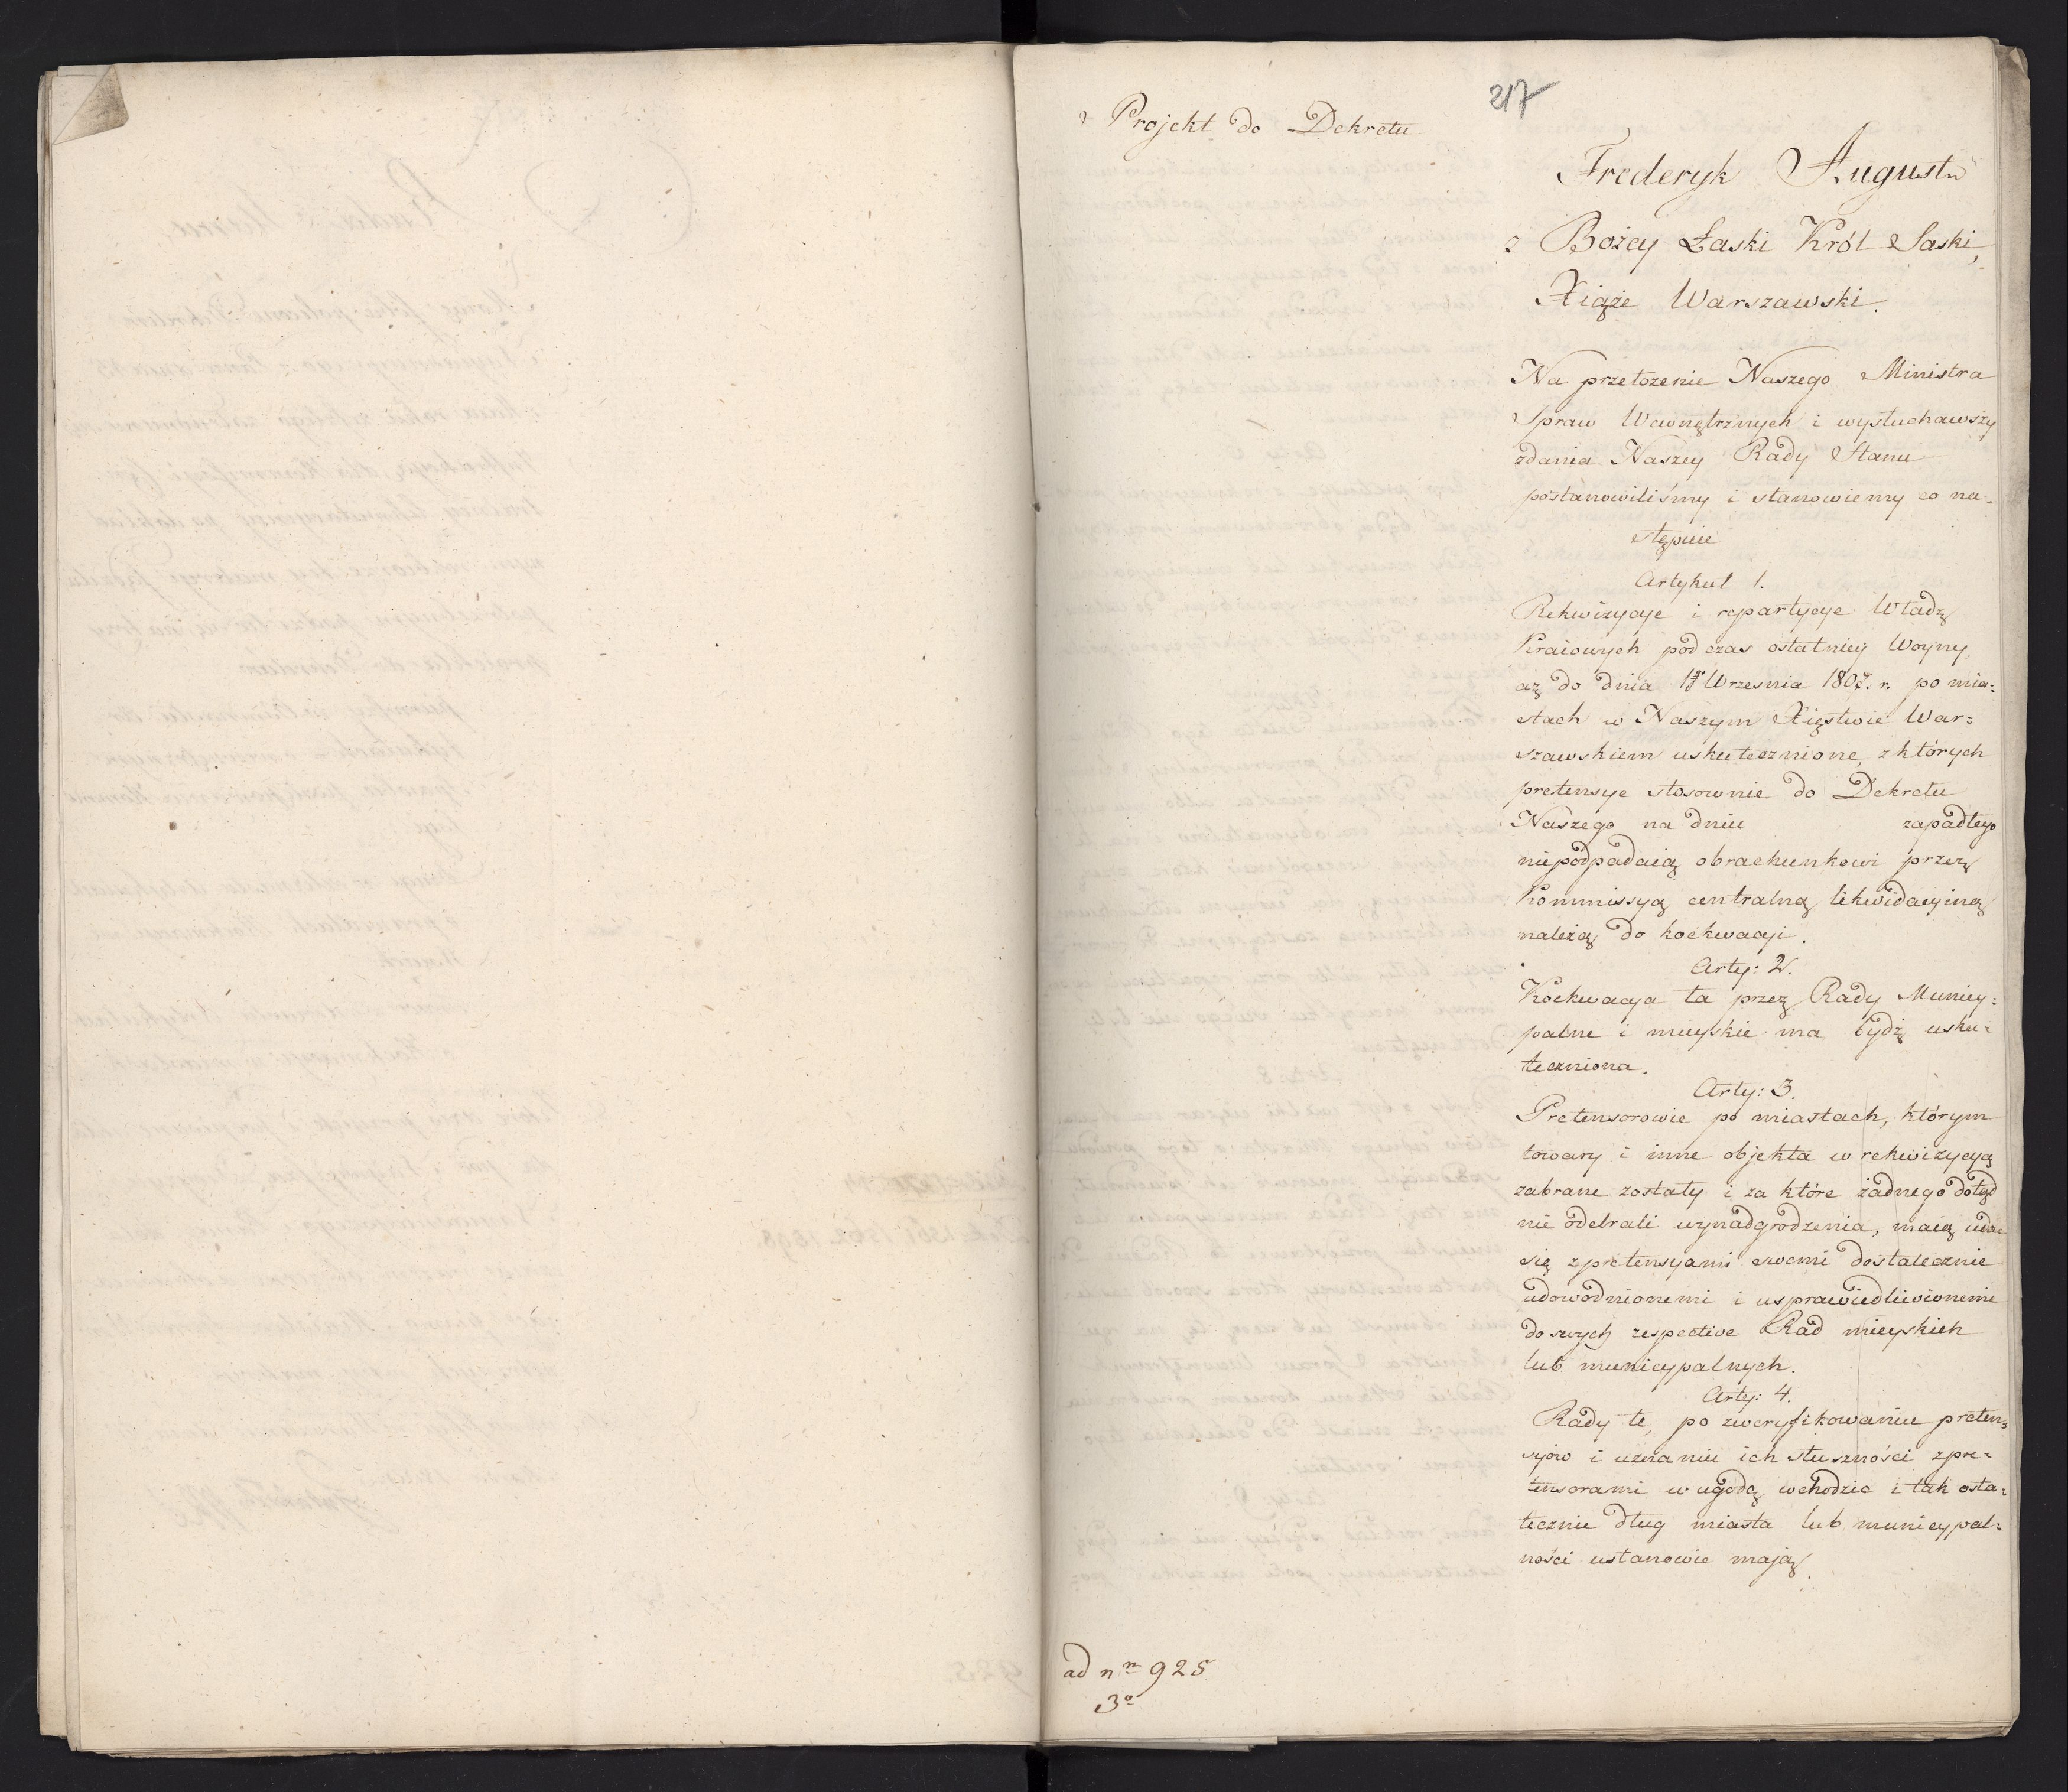 217
Projekt do Dekretu
Frederyk August
z Bożey Łaski Król Saski,
Xiąże Warszawski.
Na przełożenie Naszego Ministra
Spraw Wewnętrznych i wysłuchawszy
zdania Naszey Rady Stanu
postanowiliśmy i stanowiemy co na-
stępuie
Artykuł 1.
Rekwizycye i repartycye Władz
Kraiowych podczas ostatniey Woyny,
aż do dnia Września 1807. r. po mia=
stach w Naszym Xięstwie War=
szawskiem uskutecznione, z których
pretensye stosownie do Dekretu
Naszego na dniu zapadłego
niepodpadaią obrachunkowi przez
Kommissyą centralną likwidacyiną
należą do koekwacyi.
Arty: 2.
Koekwacya ta przez Rady Municy=
palne i mieyskie ma bydź usku=
teczniona.
Arty: 3.
Pretensorowie po miastach, którym
towary i inne objekta w rekwizycyą
zabrane zostały i za które żadnego dotąd
nie odebrali wynadgrodzenia, maią udać
się z pretensyami swemi dostatecznie
udowodnionemi i usprawiedliwionemi
do swych respective Rad mieyskich
lub municypalnych.
Arty: 4.
Rady te, po zweryfikowaniu preten=
syów i uznaniu ich słuszności z pre=
tensorami w ugodę wchodzić i tak osta=
tecznie dług miasta lub municypal=
ności ustanowić mają.
ad nm 925
3o